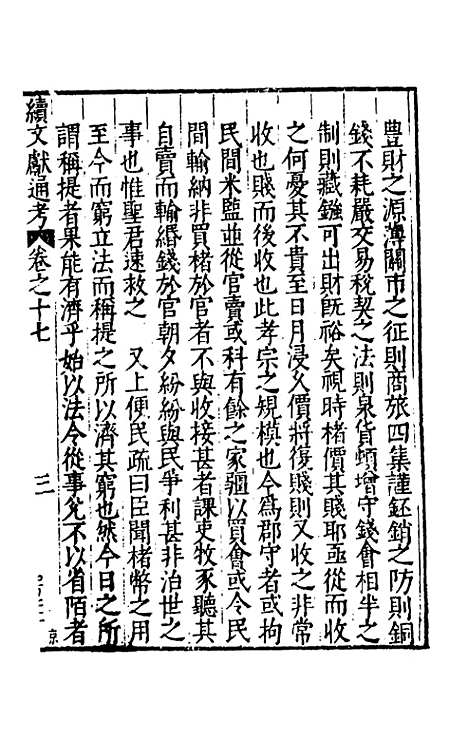 豊財之源薄關市之征則商旅四集謹鈺銷之防則銅
錢不耗嚴交易稅契之法則泉貨頓增守錢會相半之
制則藏鏹可出財既裕矣視時楮價其賤耶亟從而收
之何憂其不貴至日月浸久價將復賤則又收之非常
收也賤而後收也此孝宗之規模也今爲郡守者或拘
民間米監並從官賣或科有餘之家疆以買會或令民
間輸納非買楮於官者不與收接甚者課吏牧豕聽其
自賣而輸緡錢於官朝夕紛紛與民爭利甚非治世之
事也惟聖君速救之 又上便民疏曰臣聞楮幣之用
至今而窮立法而稱提之所以濟其窮也然今日之所
謂稱提者果能有濟乎始以法令從事兊不以省陌者
續文獻通考 卷之十七 三